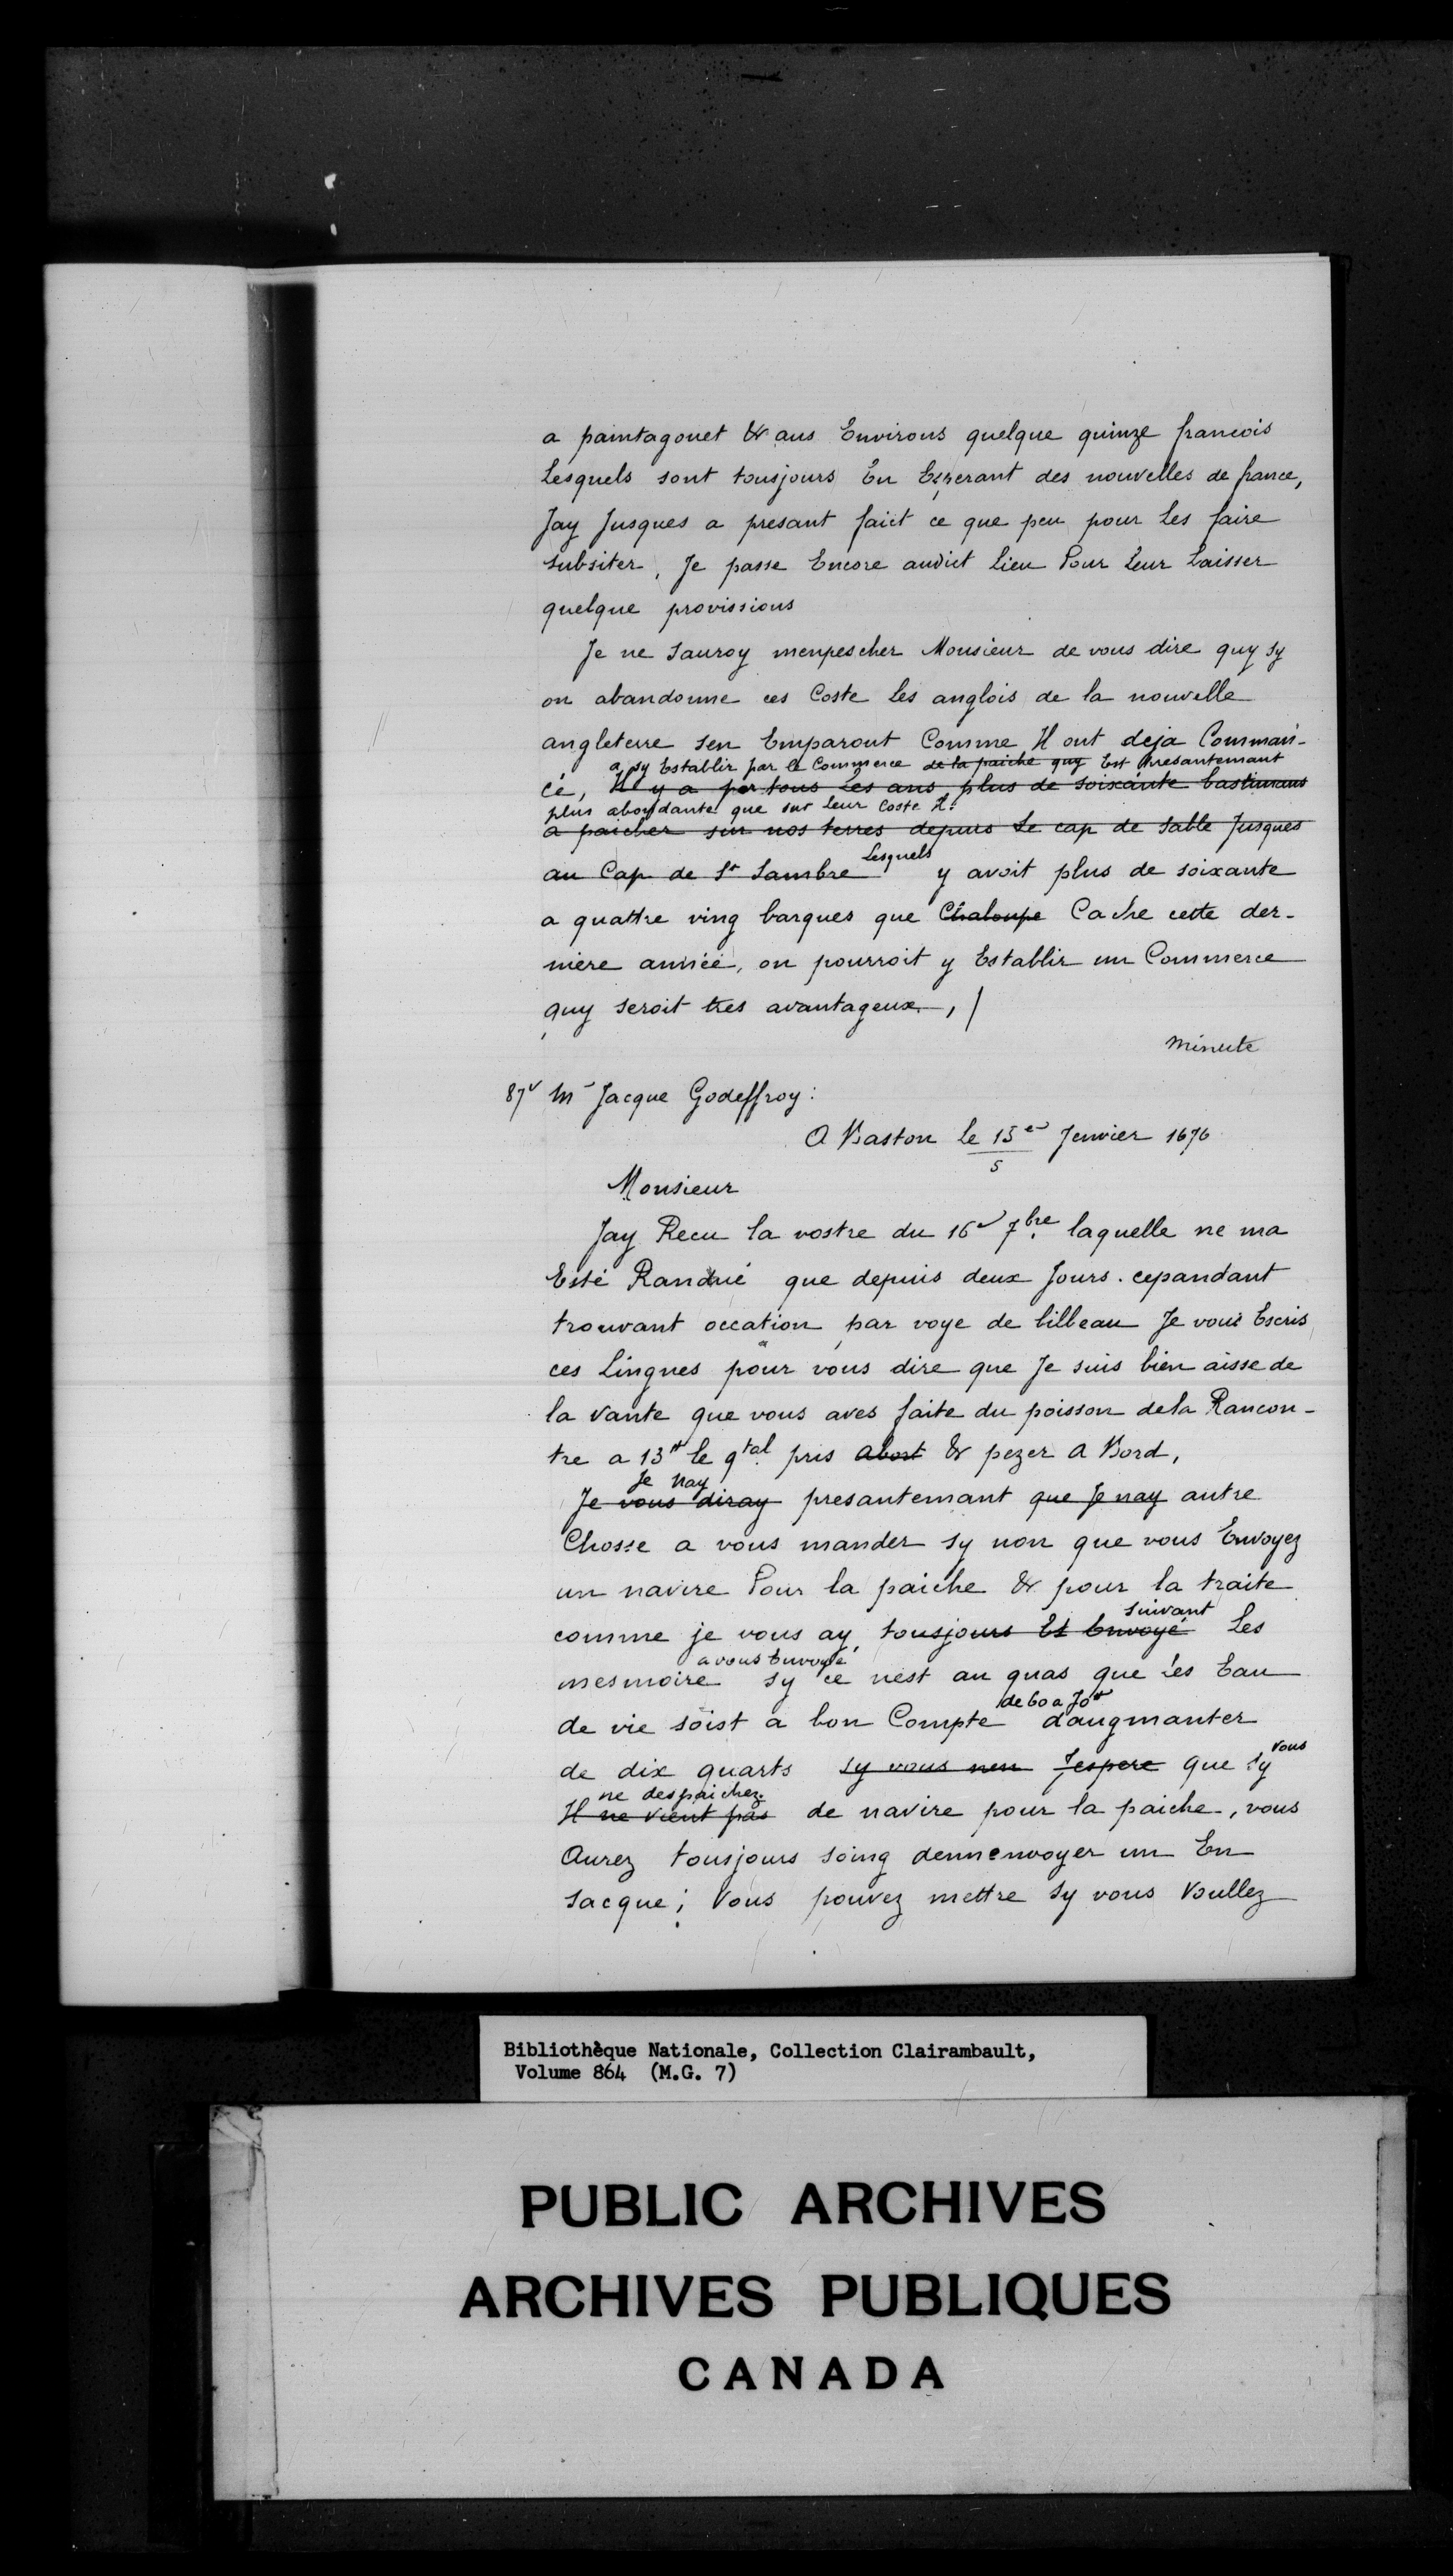 a paintagouet & aus Environs quelque quinze francois
Lesquels sont tousjours En Esperant des nouvelles de france,
Jay Jusques a presant faict ce que peu pour Les faire
subsiter, Je passe Encore audict Lieu Pour Leur Laisser
quelque provissions
Je ne sauroy menpescher Monsieur de vous dire quy sy
on abandonne ces Coste Les anglois de la nouvelle
angleterre sen Emparont Comme Il ont deja Comman-
a sy Establir par le Commerce de la paiche quy Est presantemant
cé, Il y a par tous Les ans plus de soixante bastimans
plus abondante que sur Leur Coste Il
a paicher sur nos terres depuis Le cap de Sable Jusques
au Cap de St Sambre Lesquels y avoit plus de soixante
a quattre ving barques que Chaloupe Cadre cette der-
niere année, on pourroit y Establir un Commerce
quy seroit tres avantageux, /
minute
87v Mr Jacque Godeffroy :
A Baston le 15e Jenvier 1676
5
Monsieur
Jay Recu la vostre du 16e 7bre laquelle ne ma
Esté Randué que depuis deux Jours. cepandant
trouvant occation par voye de bilbeau Je vous Escris
ces Lingnes pour vous dire que Je suis bien aisse de
la vante que vous aves faite du poisson dela Rancon-
tre a 13tt le qtal pris abort & pezer a Bord,
Je Nay
Je vous diray presantemant que Je nay autre
Chosse a vous mander sy non que vous Envoyez
un navire Pour la paiche & pour la traite
suivant
comme je vous ay, tousjours Et Envoyé Les
a vous Envoyé
mesmoire sy ce nest au quas que Les Eau
de 60 a 70tt
de vie soist a bon Compte daugmanter
de dix quarts sy vous nen Jespere que sy vous
ne despaichez
Il ne vient pas de navire pour la paiche, vous
Aurez tousjours soing dennenvoyer un En
sacque; Vous pouvez mettre sy vous Voullez
Bibliothèque Nationale, Collection Clairambault,
Volume 864 (M.G. 7)
PUBLIC ARCHIVES
ARCHIVES PUBLIQUES
CANADA